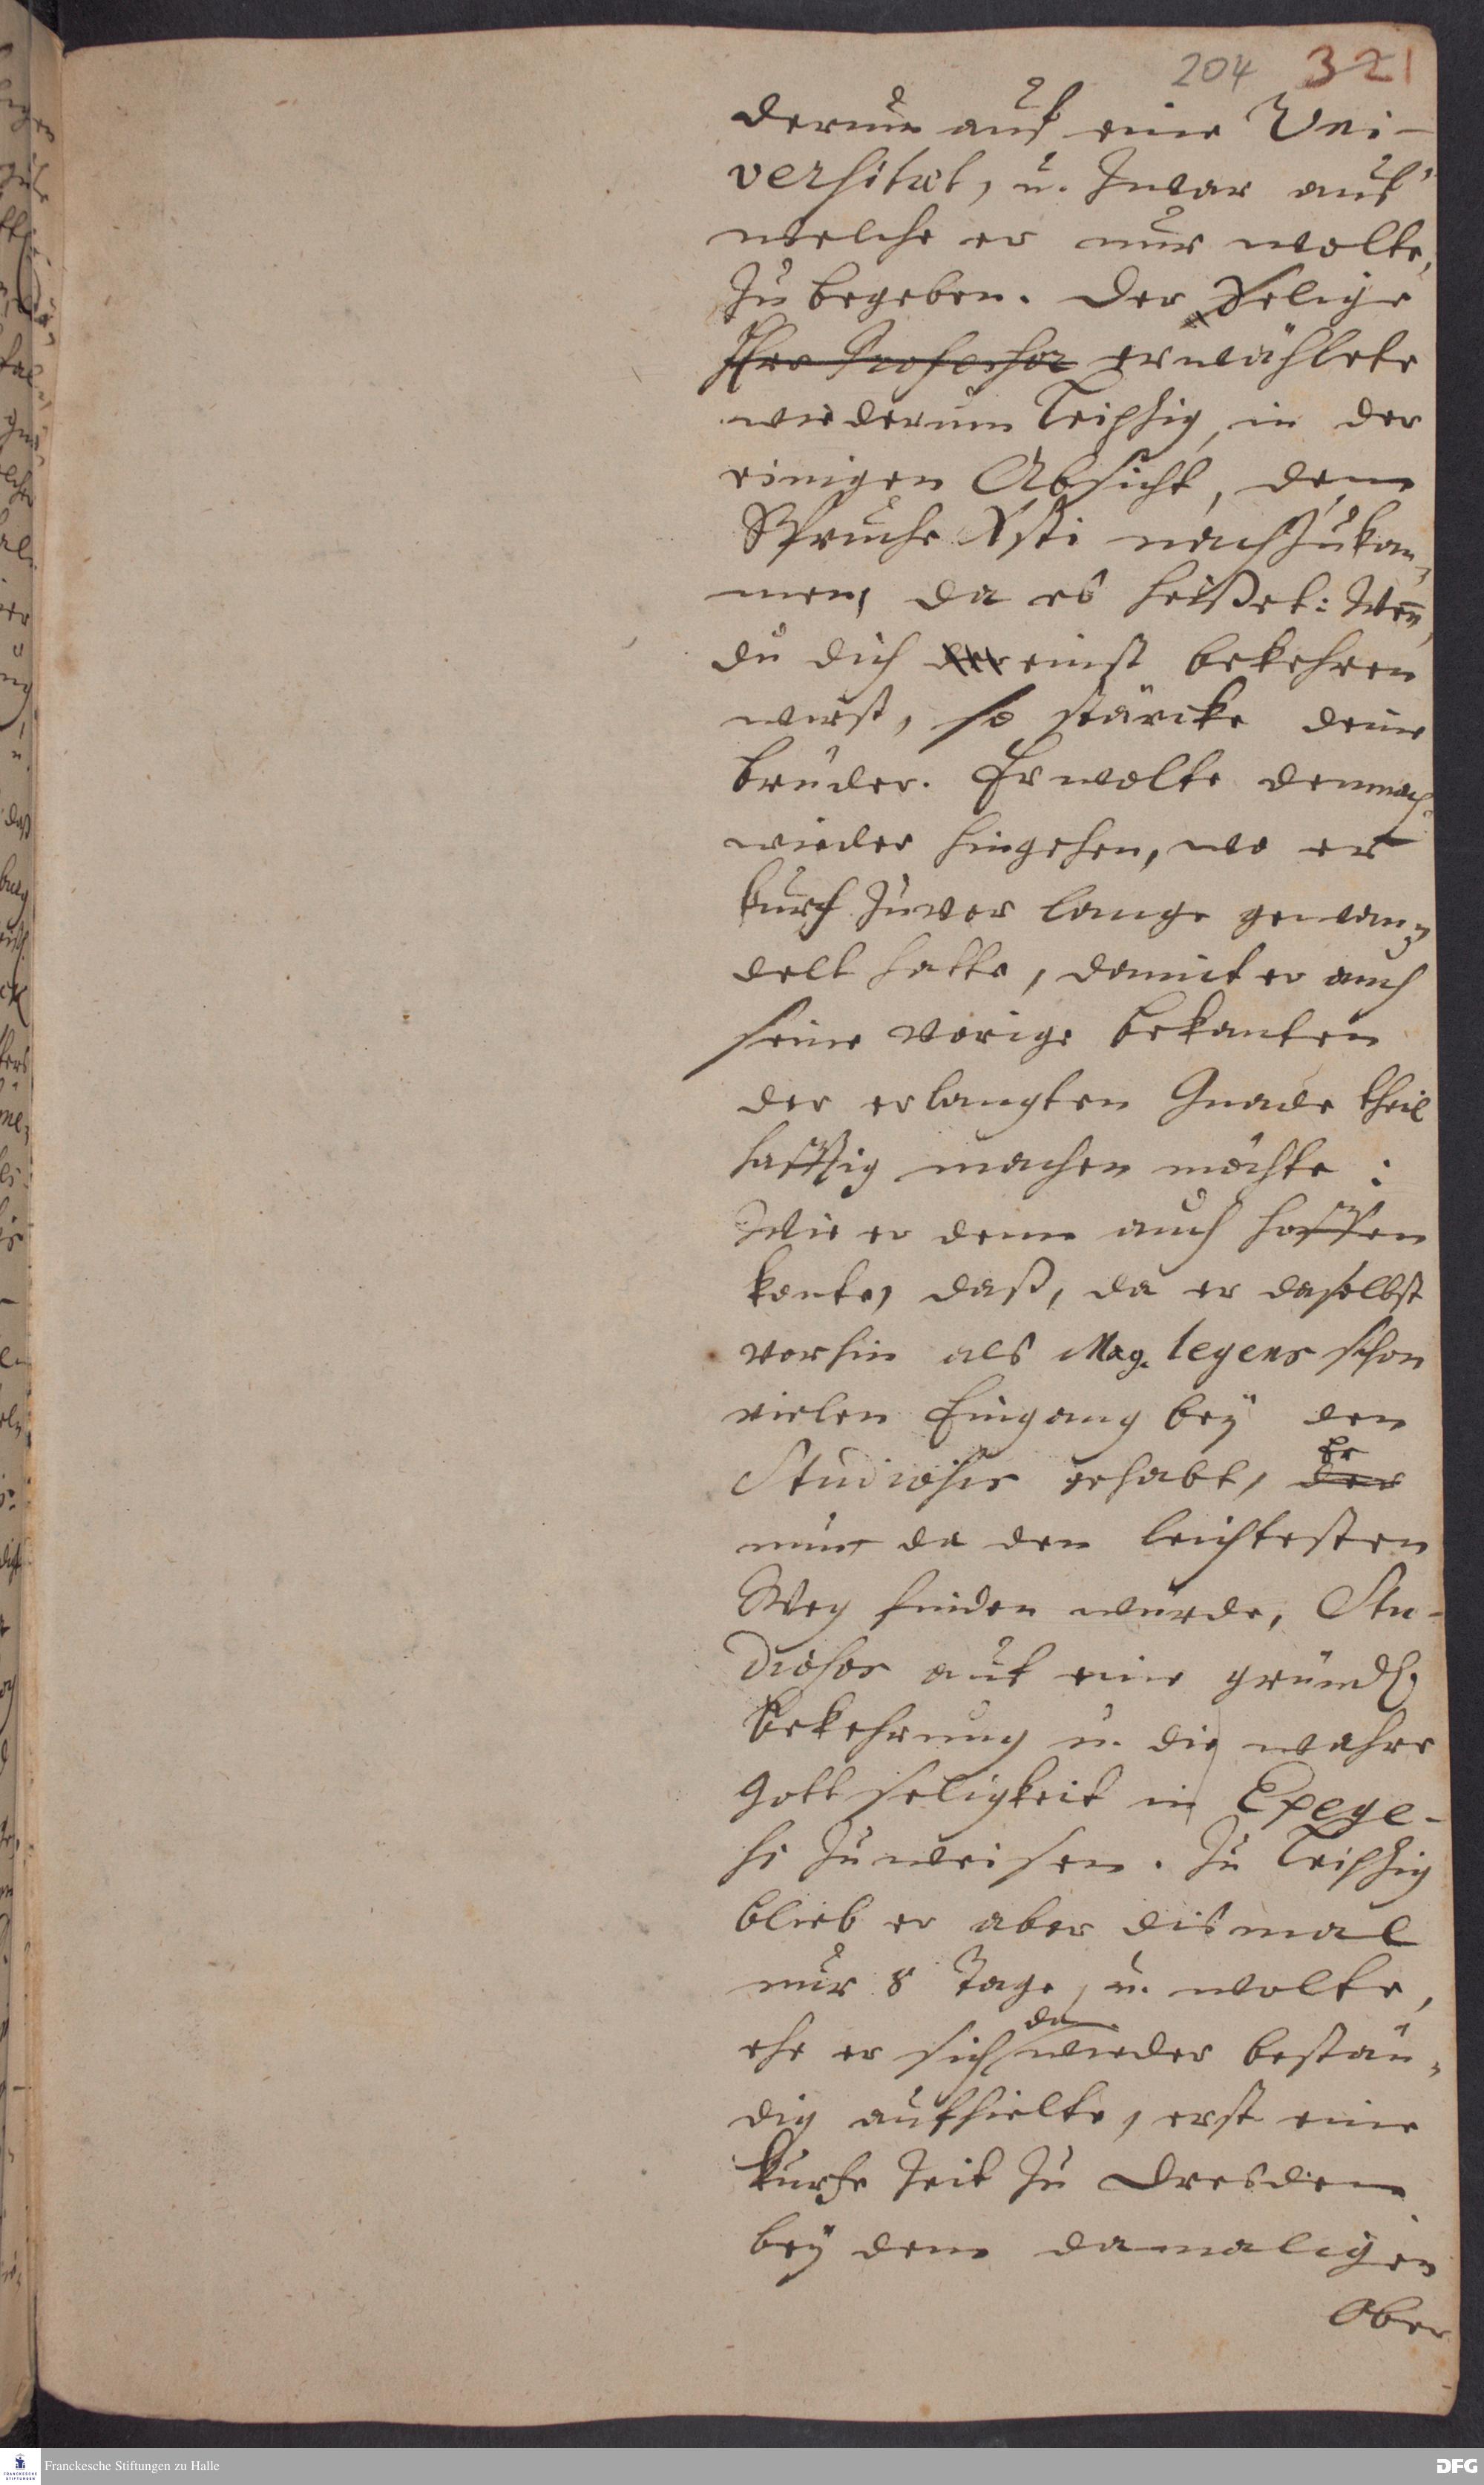 204 321
derum auf eine Uni-
versität, u. zwar auf
welche er nur wolte,
zu begeben. Der Selige
Herr Professor erwählete
wiederum Leipzig, in der
einigen Absicht, dem
Spruche Xsti nachzukom-
men, da es heißet: Wen̅
du dich der einst bekehren
wirst, so stärcke deine
brüder. Er wolte demnach
wieder hingehen, wo er
kurtz zuvor lange gewan-
delt hatte, damit er auch
seine vorige bekanten
der erlangten Gnade theil
hafftig machen möchte:
Wie er denn auch hoffen
konte, daß, da er daselbst
vorhin als Mag. legens schon
vielen Eingang bey den
Studiosis gehabt, der
Er
nun da den leichtesten
Weg finden würde, Stu-
diosos auf eine gründl.
bekehrung u. die wahre
Gottseligkeit in Exege-
si zu weisen. Zu Leipzig
blieb er aber dismal
nur 8 Tage, u. wolte,
da
ehe er sich wieder bestän-
dig aufhielte, erst eine
kurtze Zeit zu Dresden
bey dem damaligen
Ober
Franckesche Stiftungen zu Halle
DFG